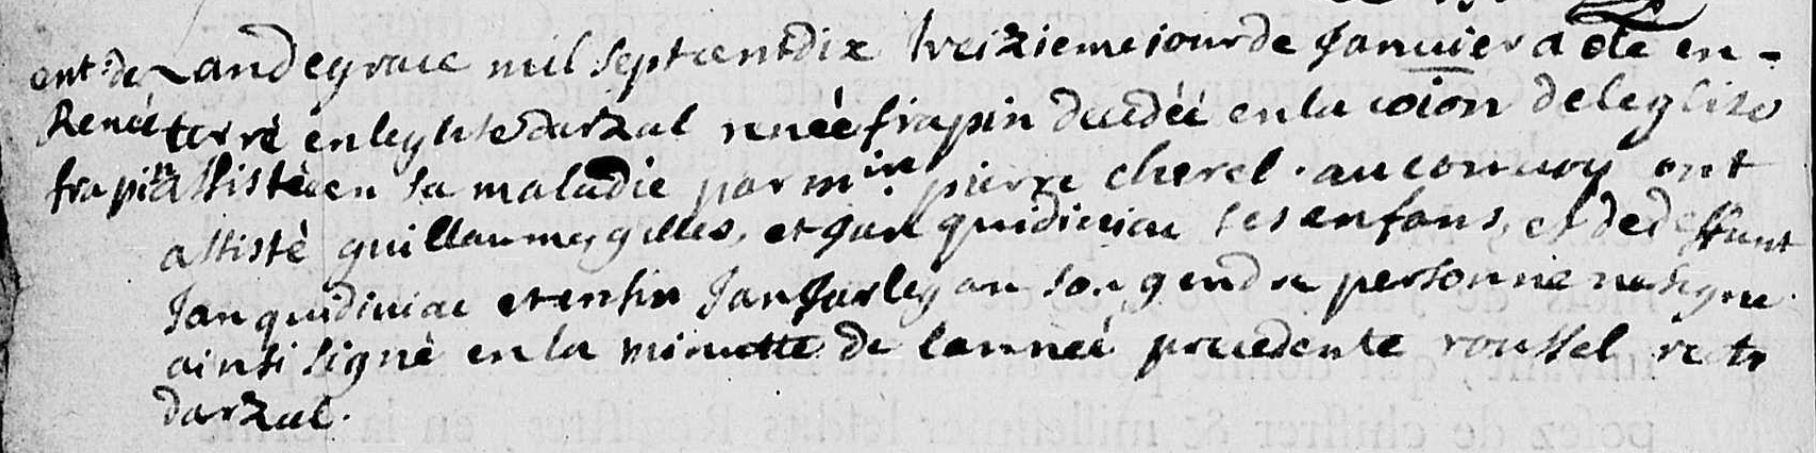 ent. de Lan de grace mil sept cent dix treizieme jour de Januier a ete en-
Renée terré en leglise darzal renée frapin decedée en la coion de leglise
frapin assistée en sa maladie par m.ire pierre cherel. au conuoy ont
assisté guillaume, gilles, et Jan quidiniac ses enfans, et de deffunt
Jan quidiniac et enfin Jan Jarlegan son gendre personne ne signe.
ainsi signé en la minutte de lannée precedente roussel rectr
darzal.